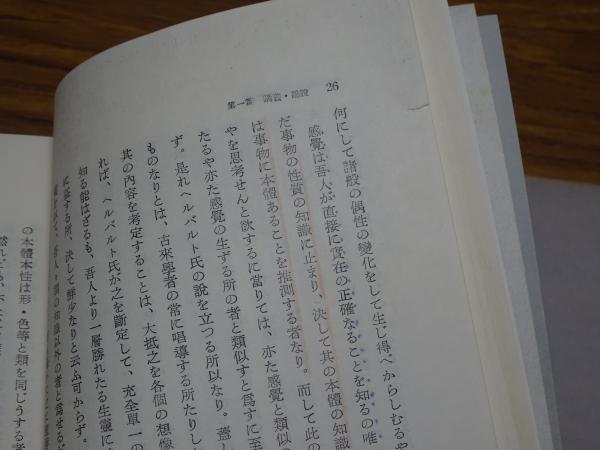 26
第一部 講義・論説
何にして諸般の偶性の變化をして生じ得べからしむるや
感覺は吾人が直接に實在の正確なることを知るの唯
だ事物の性質の知識に止まり、決して其の本體の知識
は事物に本體あることを推測する者なり。而して此の
やを思考せんと欲するに當りては、亦た感覺と類似の
たるや亦た感覺の生ずる所の者と類似すと爲すに至
ず。是れヘルバルト氏の說を立つる所以なり。蓋し
ものなりとは、古來學者の常に唱導する所たりし
其の內容を考定することは、大抵之を各個の想像
れば、ヘルバルト氏が之を斷定して、充全單一の
知る能はざるも、吾人より一層勝れたる生靈に
に託する所、決して鮮少なりと云ふ可からず。
の知識以外の者と爲せる
の本體本性は形・色等と類を同じうする者